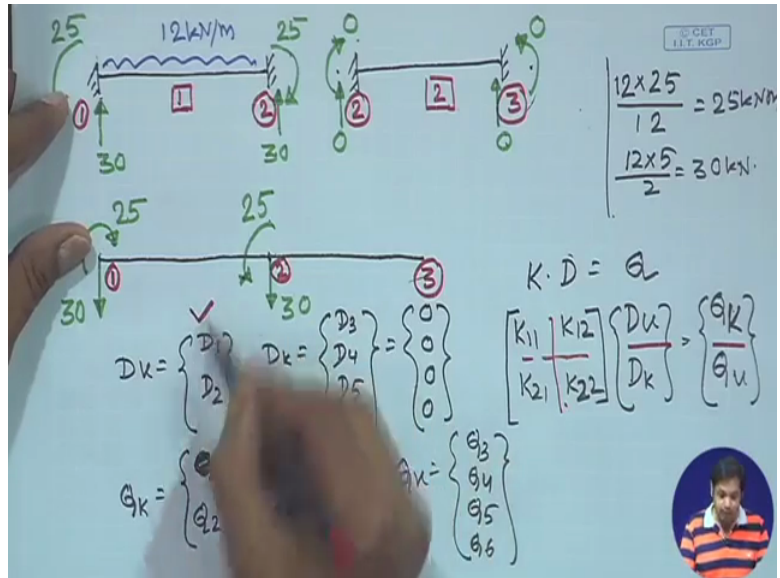 25 12kN/m 25 0 0
© CET
I.I.T. KGP
1 1 2 2 2 3
30 30 0 0
12×25/12 = 25kNm
12×5/2 = 30kN.
25 25
1 2 3
30 30
K·D = Q
[K11 K12 / K21 K22] {Du / Dk} = {Qk / Qu}
Du = {D1 D2} Dk = {D3 D4 D5} = {0 0 0 0}
Qk = { Q2 = {Q3 Q4 Q5 Q6}